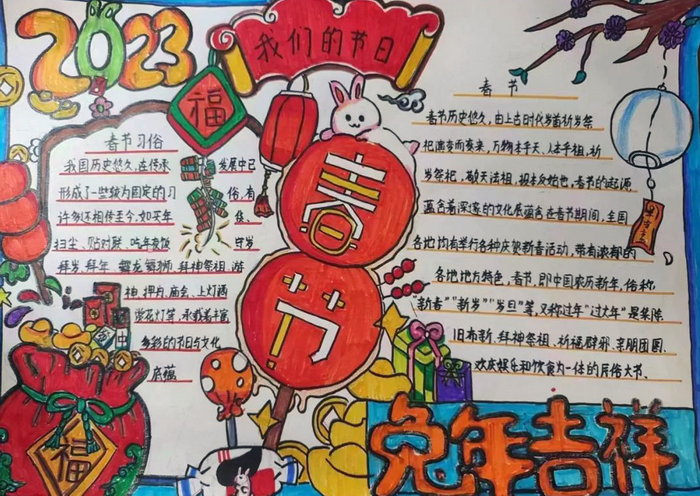 2023
我们的节日
福
春节习俗
我国历史悠久，在传承
发展中已
形成了一些较为固定的习
俗，有
许多还相传至今，如买年
货、
扫尘、贴对联、吃年夜饭
守岁
拜岁、拜年、舞龙舞狮、拜神祭祖、游
神、押舟、庙会、上灯酒
赏花灯等，承载着丰富
多彩的节日与文化
底蕴
福
春节
春节
春节历史悠久，由上古时代岁首祈岁祭
祀演变而来，万物本乎天、人本乎祖，祈
岁祭祀、敬天法祖，报本反始也，春节的起源
蕴含着深邃的文化
在春节期间，全国
各地均有举行各种庆贺新春活动，带有浓郁的
各地地方特色，春节，即中国农历新年，俗称
"新春""新岁""岁旦"等，又称过年"过大年"是集除
旧布新、拜神祭祖、祈福辟邪、亲朋团圆、
欢庆娱乐和饮食为一体的民俗大节。
兔年吉祥